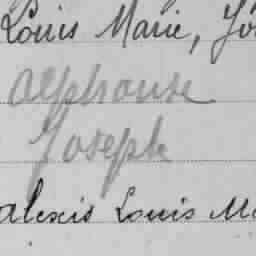 Louis Marie, Jo
Alphonse
Joseph
alexis Louis Ma